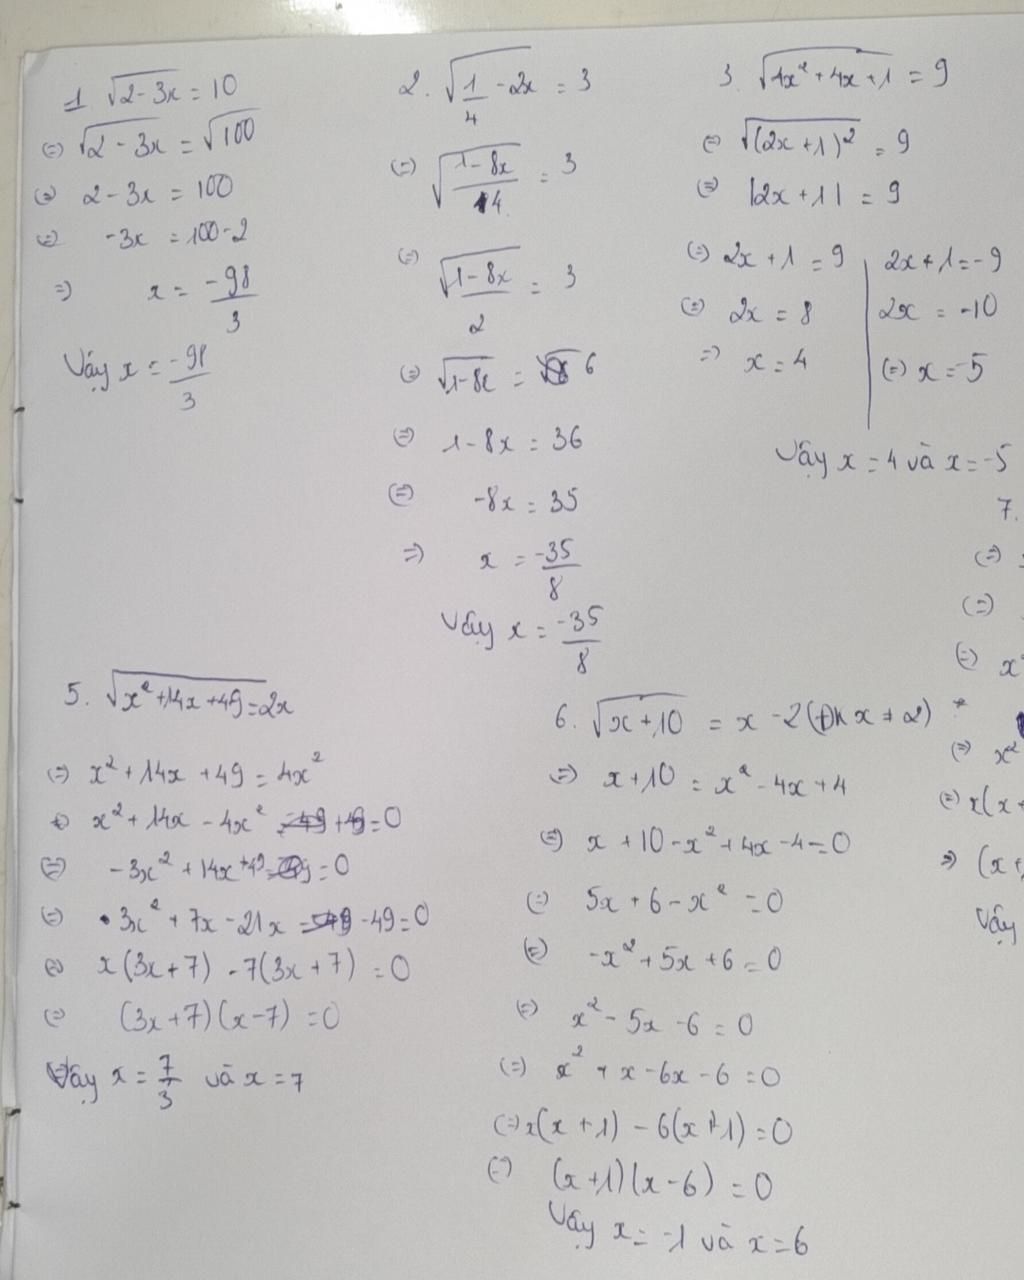 1. √(2-3x) = 10
(=) √(2-3x) = √100
(=) 2-3x = 100
(=) -3x = 100-2
=) x = -98/3
Vậy x = -98/3
2. √(1/4 - 2x) = 3
(=) √((1-8x)/4) = 3
(=) √(1-8x)/2 = 3
(=) √(1-8x) = 6
(=) 1-8x = 36
(=) -8x = 35
=) x = -35/8
Vậy x = -35/8
3. √(4x²+4x+1) = 9
(=) √((2x+1)²) = 9
(=) |2x+1| = 9
(=) 2x+1 = 9 | 2x+1 = -9
(=) 2x = 8 | 2x = -10
=) x = 4 | (=) x = -5
Vậy x = 4 và x = -5
5. √(x²+14x+49) = 2x
(=) x²+14x+49 = 4x²
(=) x²+14x-4x²+49=0
(=) -3x²+14x+49=0
(=) 3x²+7x-21x-49=0
(=) x(3x+7)-7(3x+7)=0
(=) (3x+7)(x-7)=0
Vậy x = 7/3 và x = 7
6. √(x+10) = x-2 (ĐK x ≠ 2)
(=) x+10 = x²-4x+4
(=) x+10-x²+4x-4=0
(=) 5x+6-x²=0
(=) -x²+5x+6=0
(=) x²-5x-6=0
(=) x²+x-6x-6=0
(=) x(x+1)-6(x+1)=0
(=) (x+1)(x-6)=0
Vậy x = -1 và x = 6
7.
(=)
(=)
(=) x²
(=) x²
(=) x(x+
=) (x+
Vậy